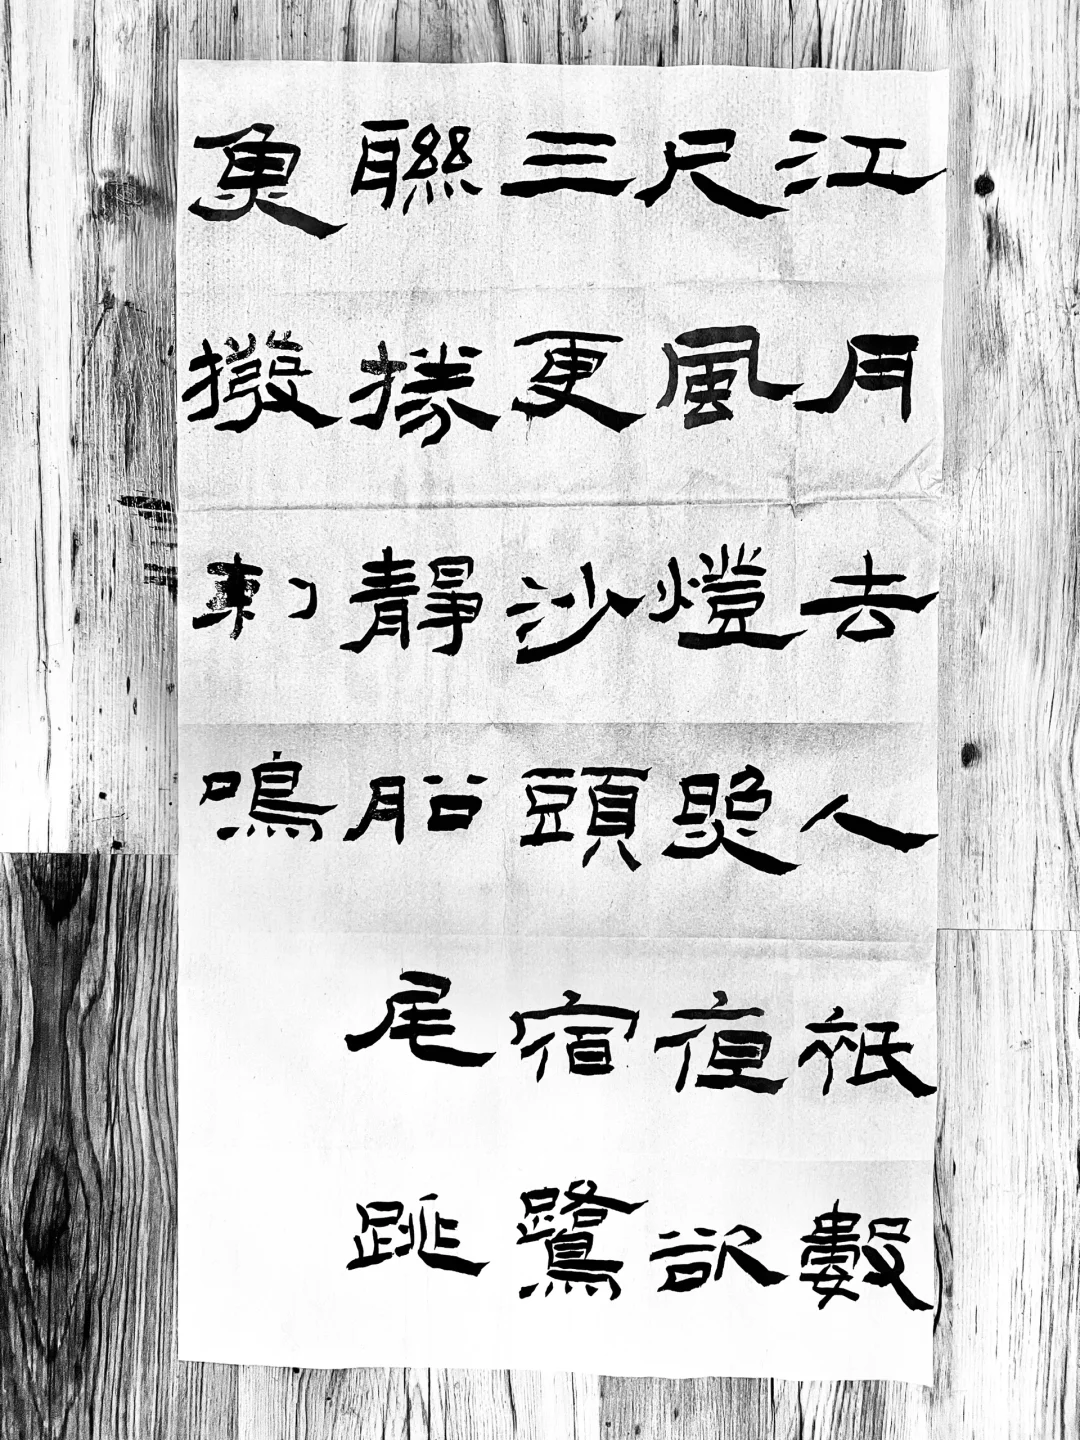 江月去人祇數
尺風燈照夜欲
三更沙頭宿鷺
聯拳靜船尾跳
魚撥刺鳴